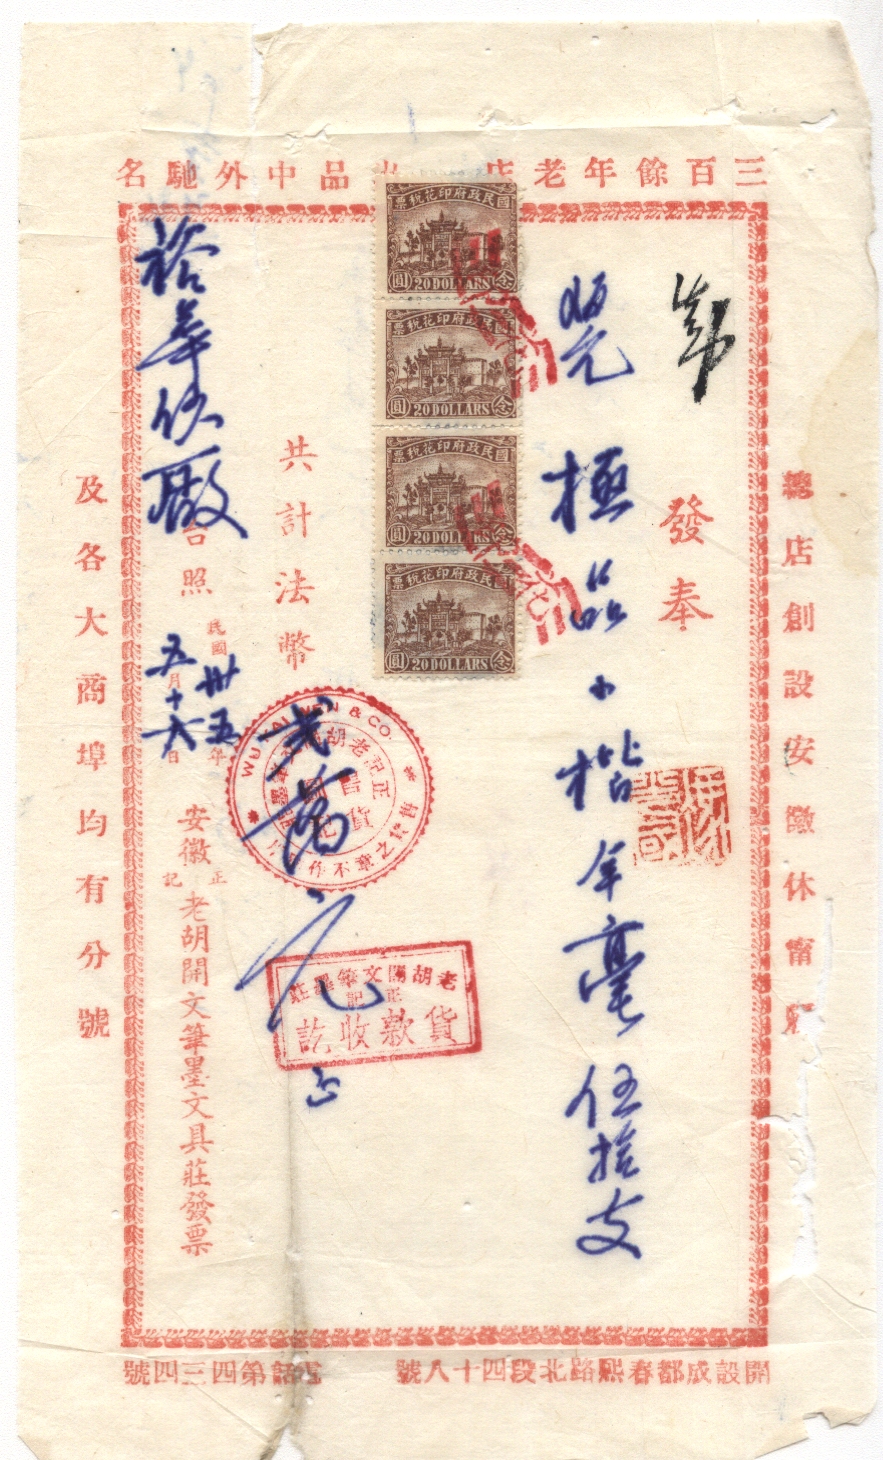 三百餘年老店 出品中外馳名
總店創設安徽休甯縣
發奉
照 極品小楷羊毫伍拾支
國民政府印花稅票
圓 20 DOLLARS 念
國民政府印花稅票
圓 20 DOLLARS 念
國民政府印花稅票
圓 20 DOLLARS 念
國民政府印花稅票
圓 20 DOLLARS 念
共計法幣 弍萬元正
& CO.
老胡開文筆墨莊
正記
貨款收訖
裕華紗廠 台照
民國卅五年
五月十六日
安徽 正記 老胡開文筆墨文具莊發票
及各大商埠均有分號
開設成都春熙路北段四十八號 電話第四三四號